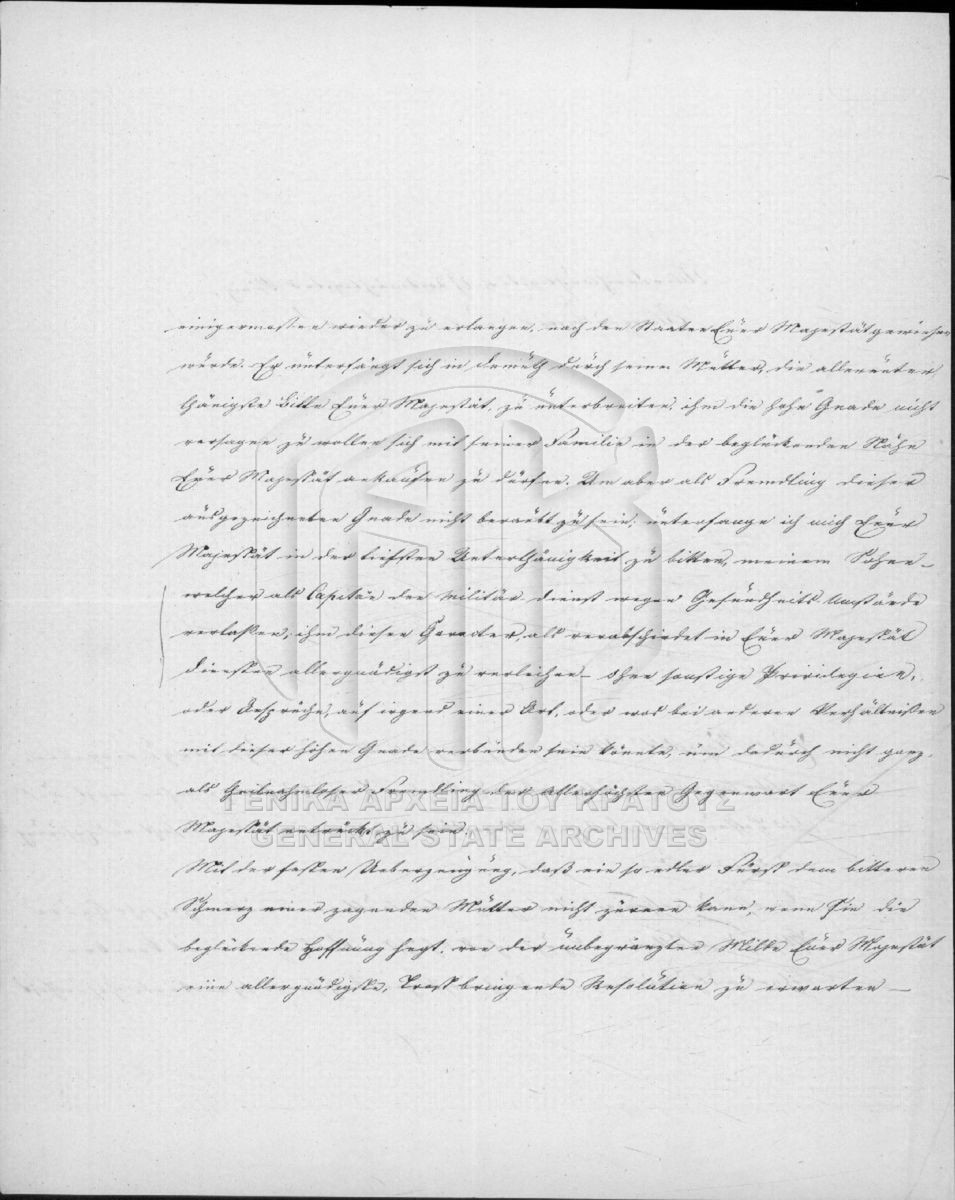 einigermassen wieder zu erlangen, nach den Staaten Euer Majestät gewiesen
würde. Er unterfängt sich in Demuth durch seine Mutter, die allerunter
thänigste Bitte Euer Majestät, zu unterbreiten, ihm die hohe Gnade nicht
versagen zu wollen sich mit seiner Familie in der beglückenden Nähe
Euer Majestät ankaufen zu dürfen. Um aber als Fremdling dieser
ausgezeichneten Gnade nicht beraubt zu sein; unterfange ich mich Euer
Majestät in der tiefsten Unterthänigkeit zu bitten, meinem Sohne –
welcher als Capitän den Militär dienst wegen Gesundheits Umstände
verlassen, ihm diesen Caracter, als verabschiedet in Euer Majestät
Diensten allergnädigst zu verleihen – ohne sonstige Privilegien,
oder Ansprüche, auf irgend einer Art, oder was bei anderen Verhältnißen
mit dieser hohen Gnade verbunden sein könnte, um dadurch nicht ganz,
als theilnahmloser Fremdling der Allerhöchsten Gegenwart Euer
Majestät entrückt zu sein.
Mit der festen Ueberzeugung, daß ein so edler Fürst dem bitteren
Schmerz einer zagenden Mutter nicht zürnen kann, wenn sie die
beglückende Hoffnung hegt, von der unbegränzten Milde Euer Majestät
eine allergnädigste, Trost bringende Resolution zu erwarten –
ΓΕΝΙΚΑ ΑΡΧΕΙΑ ΤΟΥ ΚΡΑΤΟΥΣ
GENERAL STATE ARCHIVES